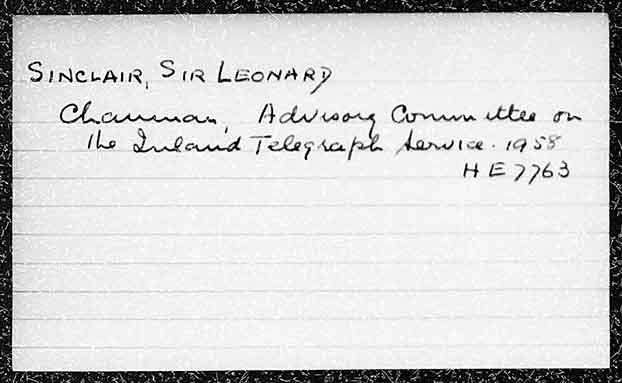 SINCLAIR, SIR LEONARD
Chairman, Advisory Committee on
the Inland Telegraph Service. 1958
HE7763